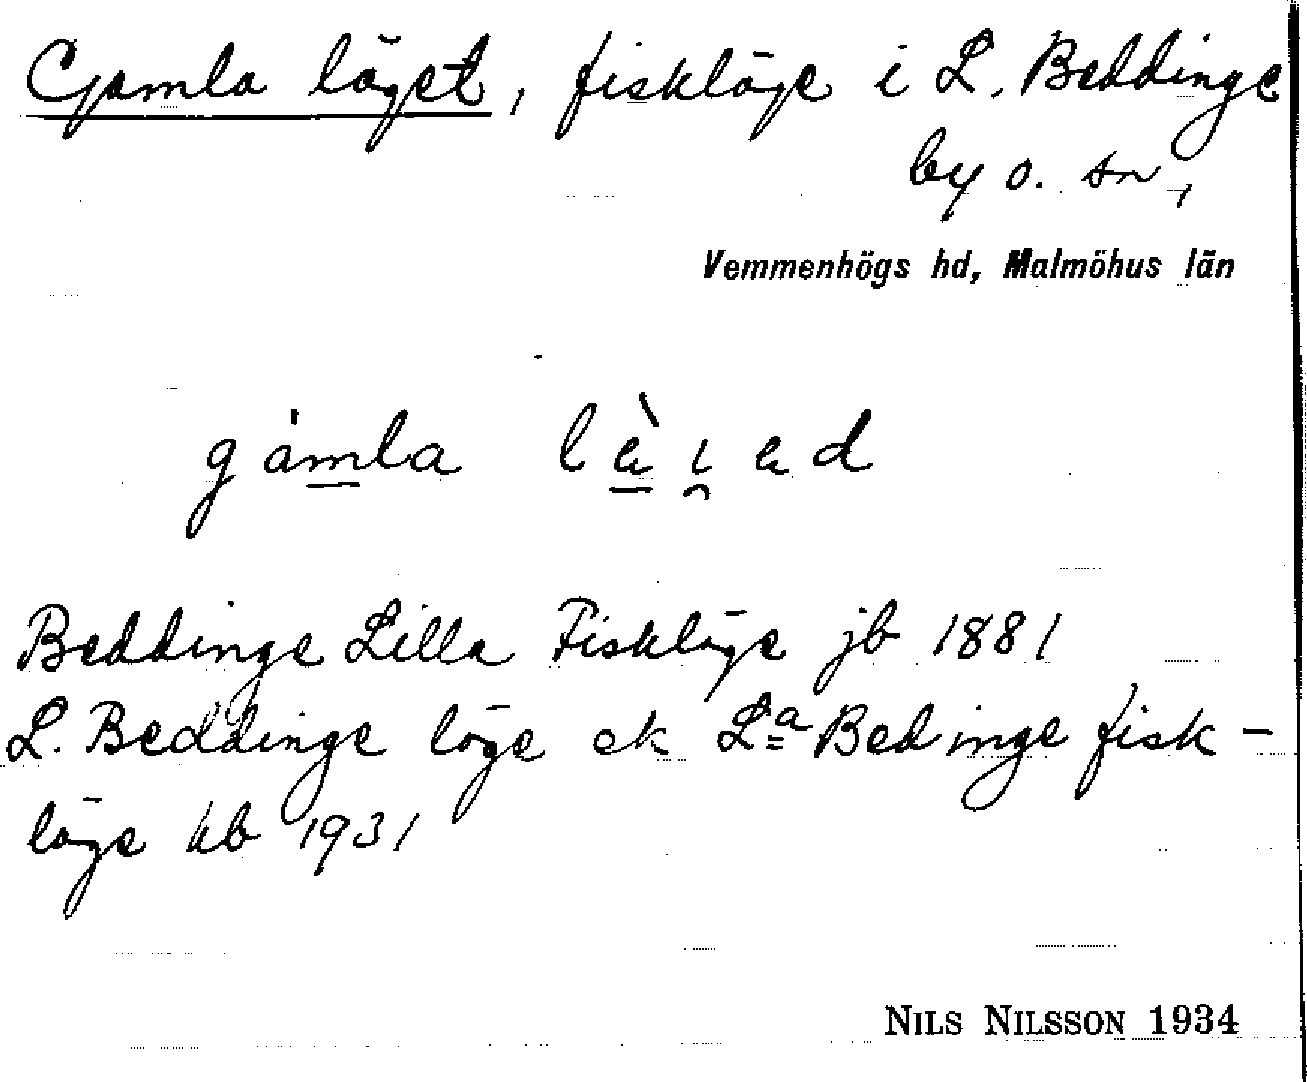 Gamla läget, fiskläge i L. Beddinge
by o. sn,
Vemmenhögs hd, Malmöhus län
Beddinge Lilla Fiskläge jb 1881
L. Beddinge läge ek Lᵃ Bedinge fisk-
läge kb 1931
NILS NILSSON 1934